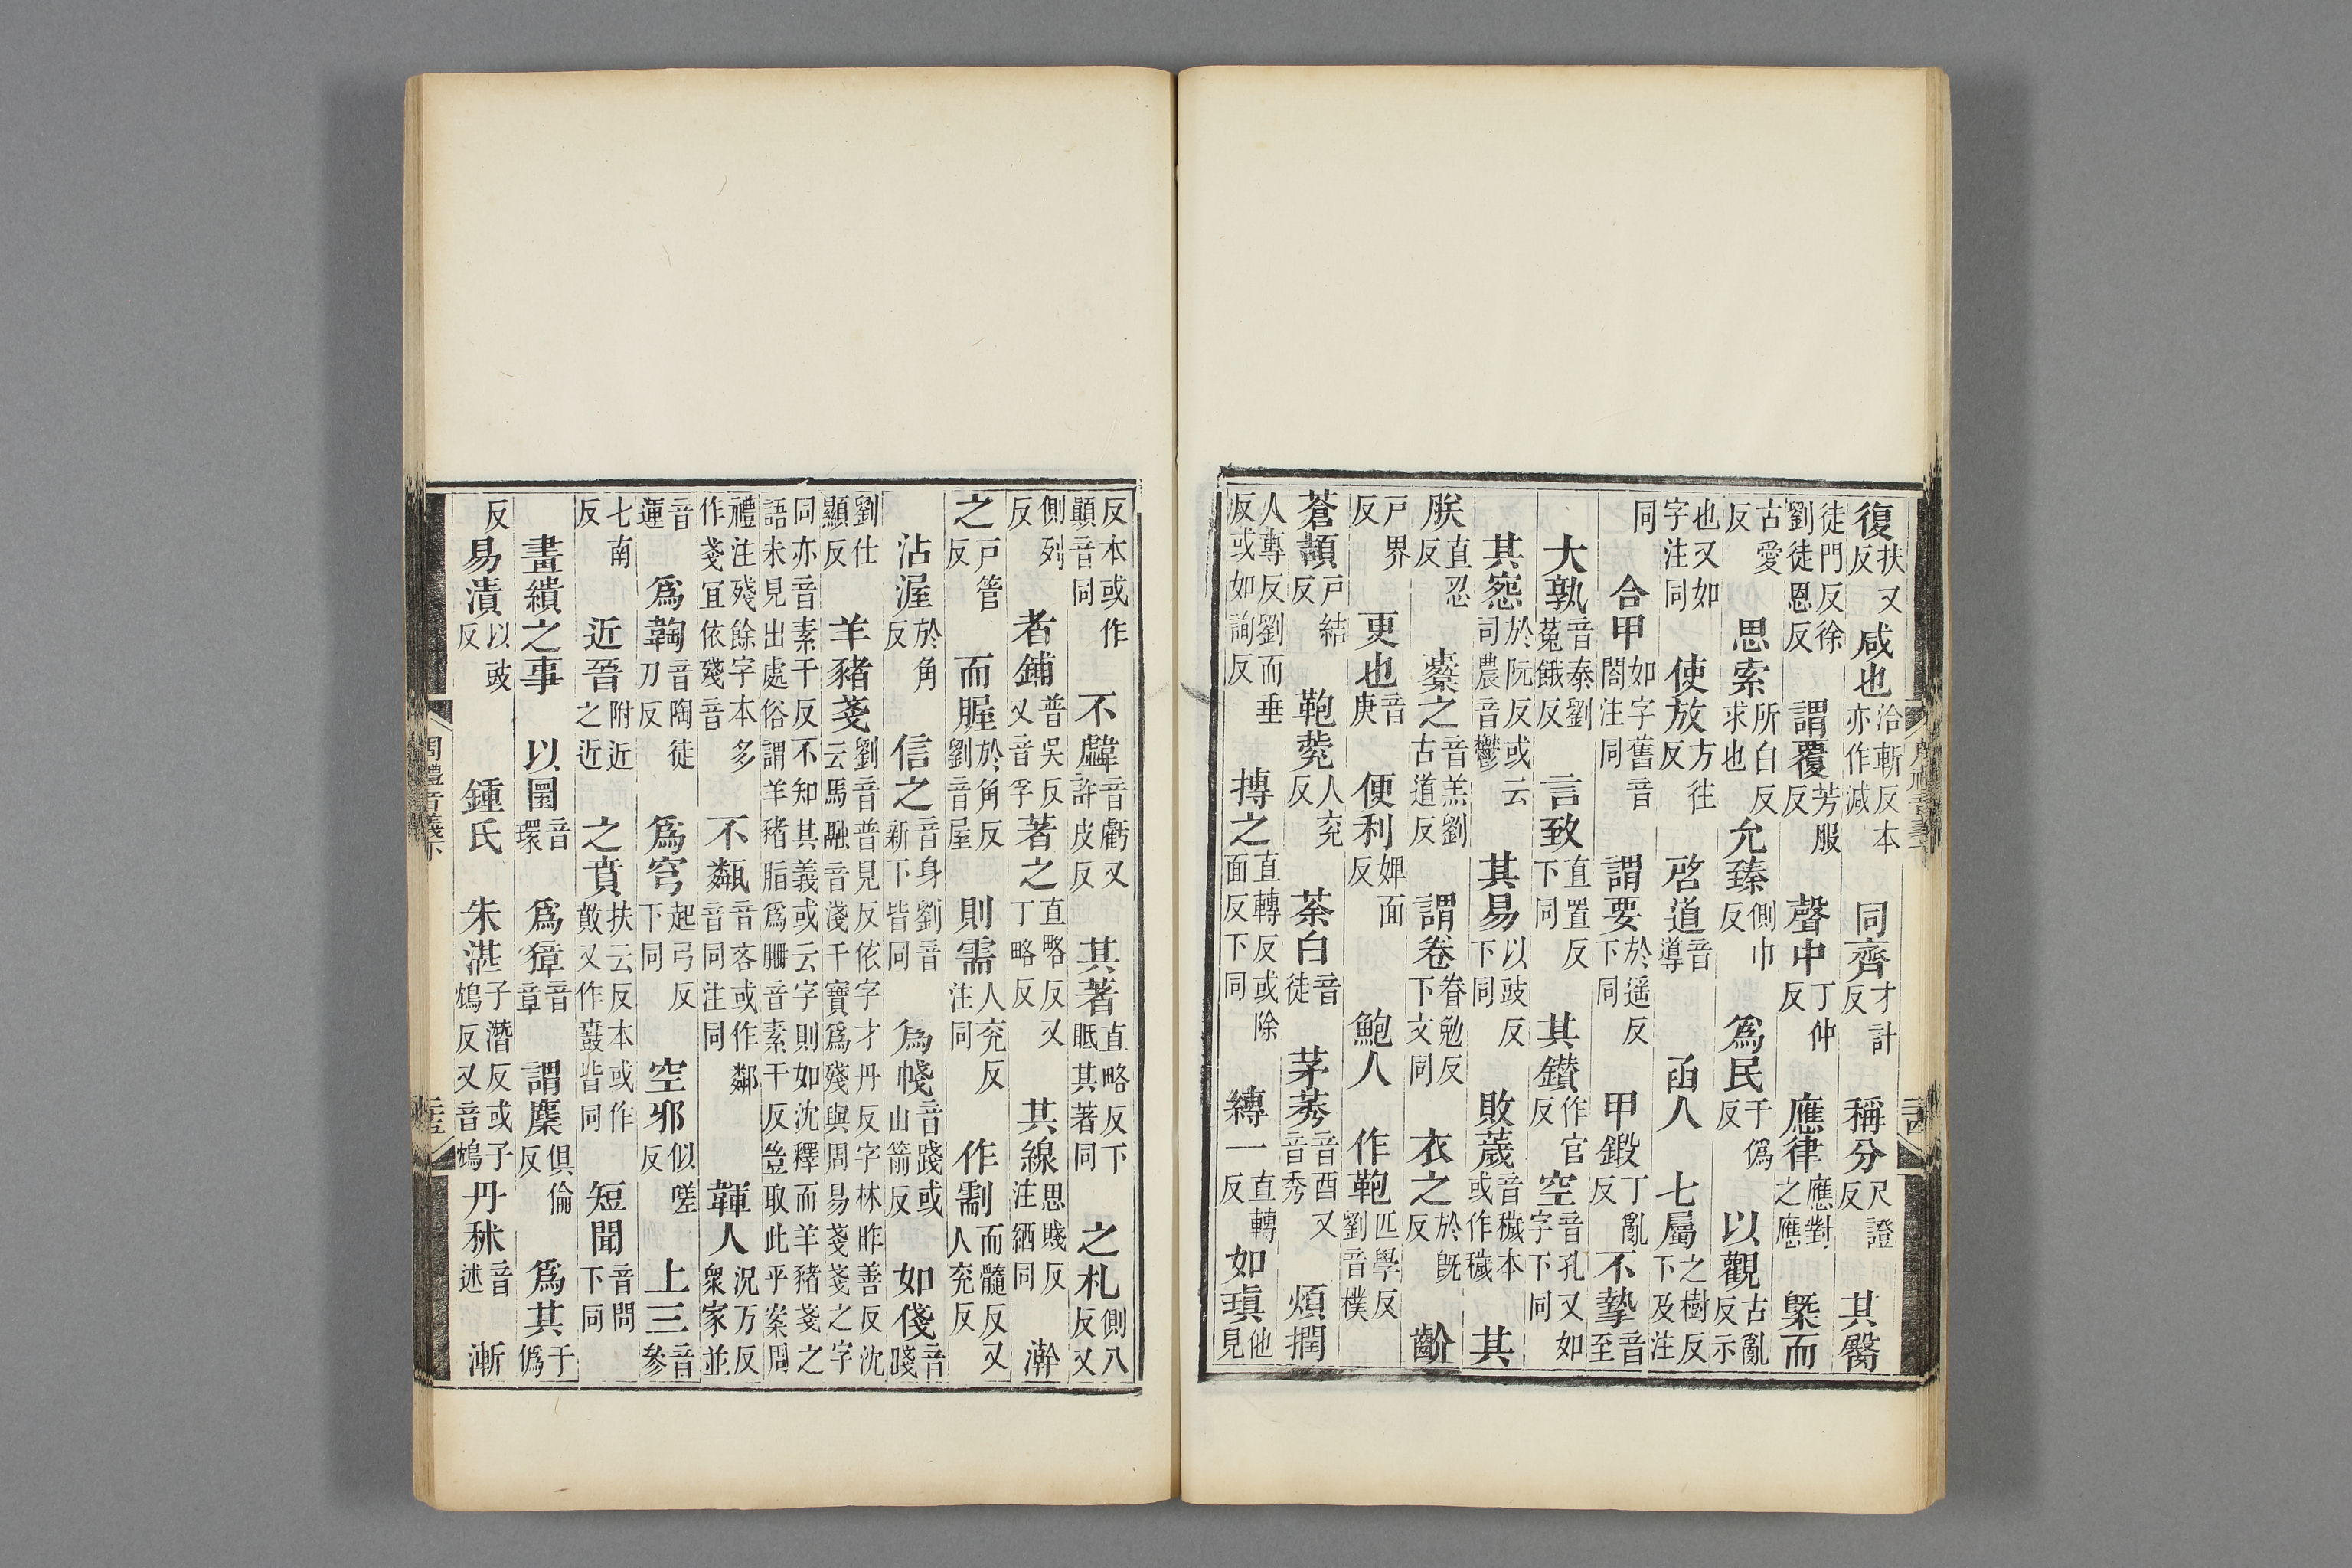 復扶又反咸也洽斬反本亦作減同齊才計反稱分尺證反其臋
徒門反徐劉徒恩反謂覆芳服反聲中丁仲反應律應對之應㮣而
古愛反思索所白反求也允臻側巾反爲民于僞反以觀古亂反示
也又如字注同使放方往反啓道音導函人七屬之樹反下及注
同合甲如字舊音閤注同謂要於遥反下同甲鍛丁亂反不摯音至
大孰音泰劉菟餓反言致直置反下同其鑽作官反空音孔又如字下同
其窓於阮反或云司農音鬱其易以豉反下同敗薉音穢本或作穢其
朕直忍反櫜之音羔劉古道反謂卷眷勉反下文同衣之於旣反齘
戶界反更也音庚便利婢面反鮑人作鞄匹學反劉音樸
蒼頡戶結反鞄㼱人兖反荼白音徒茅莠音酉又音秀煩撋
人專反劉而垂反或如詢反摶之直轉反或除面反下同縳一直轉反如瑱他見
反本或作顛音同不音虧又許皮反其著直略反下眂其著同之札側八反又
側列反者鋪普吳反又音孚著之直略反又丁略反其線思賤反注綇同澣
之戶管反而腛於角反劉音屋則需人兖反注同作劀而髓反又人兖反
沾渥於角反信之音身劉音新下皆同爲帴音踐或山箭反如俴音踐
劉仕顯反羊豬戔劉音普見反依字才丹反字林昨善反沈云馬融音淺干寶爲殘與周易戔戔之字
同亦音素干反不知其義或云字則如沈釋而羊豬戔之語未見出處俗謂羊豬脂爲䏝音素干反豈取此乎案周
禮注殘餘字本多作戔宜依殘音不甐音吝或作鄰音同注同韗人況万反衆家並
音運爲鞠音陶徒刀反爲穹起弓反下同空邪似嗟反上三音參
七南反近晉附近之近之賁扶云反本或作蕡又作鼖皆同短聞音問下同
畫繢之事以圜音環爲獐音章謂麇俱倫反爲其于僞
反易漬以豉反鍾氏朱湛子潛反或子鴆反又音鴆丹秫音述漸
周禮音義下